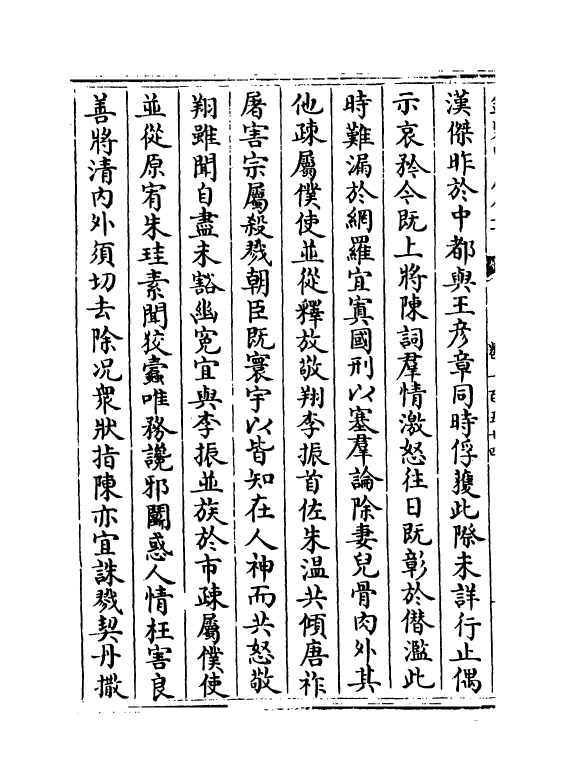 漢傑昨於中都與王彥章同時俘獲此際未詳行止偶
示哀矜今既上將陳詞羣情激怒往日既彰於僣濫此
時難漏於網羅宜寘國刑以塞羣論除妻兒骨肉外其
他疎屬僕使並從釋放敬翔李振首佐朱温共傾唐祚
屠害宗屬殺戮朝臣既寰宇以皆知在人神而共怒敬
翔雖聞自盡未豁幽寃宜與李振並族於市疎屬僕使
並從原宥朱珪素聞狡蠧唯務讒邪鬭惑人情枉害良
善將清内外須切去除况衆狀指陳亦宜誅戮契丹撒